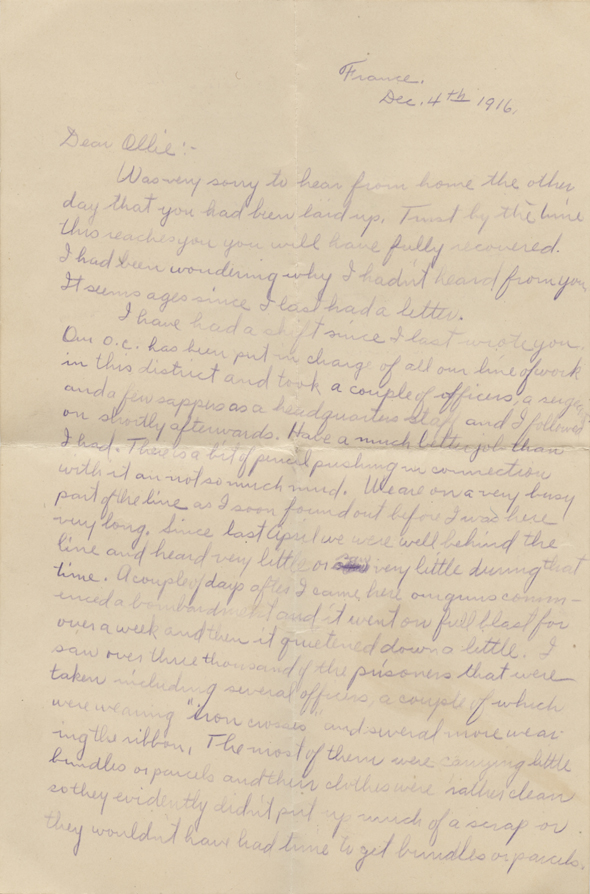 France.
Dec. 4th 1916.
Dear Ollie:-
Was very sorry to hear from home the other
day that you had been laid up. Trust by the time
this reaches you you will have fully recovered.
I had been wondering why I hadn't heard from you.
It seems ages since I last had a letter.
I have had a shift since I last wrote you.
Our O.C. has been put in charge of all our line of work
in this district and took a couple of officers, a
and a few sappers as a headquarters staff and I followed
on shortly afterwards. Have a much better job than
I had. There is a bit of pencil pushing in connection
with it an not so much mud. We are on a very busy
part of the line as I soon found out before I was here
very long. Since last April we were well behind the
line and heard very little or very little during that
time. A couple of days after I came here our guns comm-
enced a bombardment and it went on full blast for
over a week and then it quietened down a little. I
saw over three thousand of the prisoners that were
taken including several officers, a couple of which
were wearing "iron crosses" and several more wear-
ing the ribbon. The most of them were carrying little
bundles or parcels and their clothes were rather clean
so they evidently didn't put up much of a scrap or
they wouldn't have had time to get bundles or parcels.